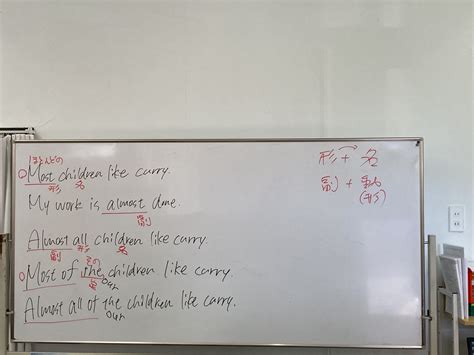 ほとんどの
Most children like curry.
形 名
形 + 名
My work is almost done.
副
副 + 動
(形)
Almost all children like curry.
副 形 名
その
Most of the children like curry.
名 our
Almost all of the children like curry.
our